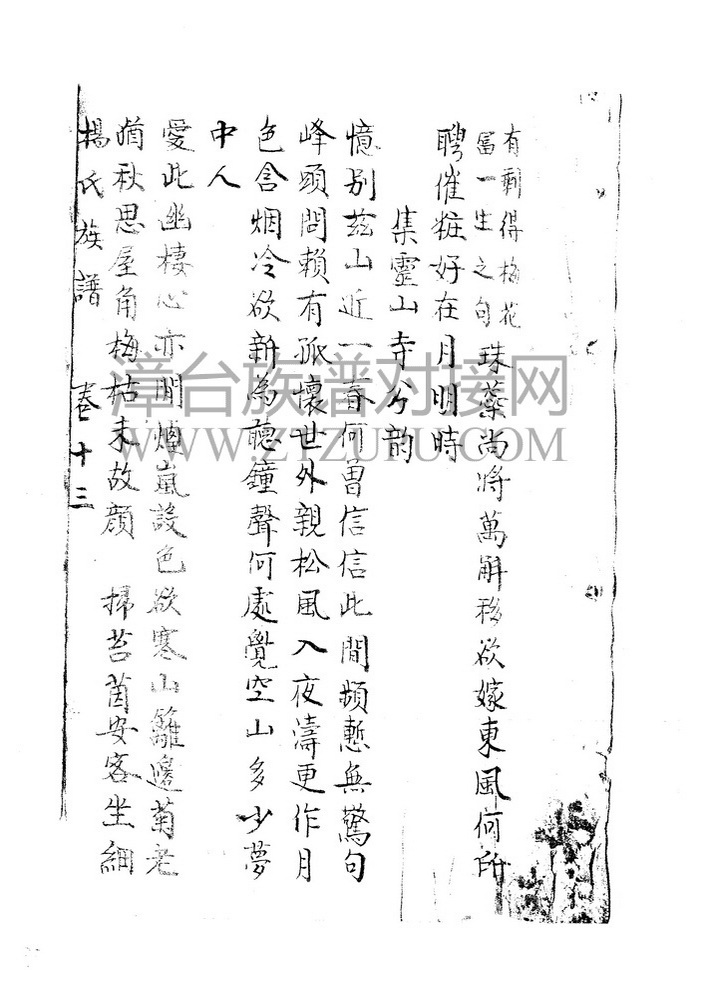 有剩得梅花
富一生之句
珠蘂尚將萬斛移欲嫁東風何所
聘催粧好在月明時
集靈山寺分韵
憶別茲山近一春何曾信信此間頻慙無驚句
峰頭問賴有孤懷世外親松風入夜濤更作月
色含烟冷欲新為聽鐘聲何處覺空山多少夢
中人
愛此幽棲心亦閒煙嵐設色欲寒山籬邊菊老
猶秋思屋角梅枯未故顔 掃苔茵安客坐細
楊氏族譜 卷十三
漳台族谱对接网
WWW.ZTZUPU.COM